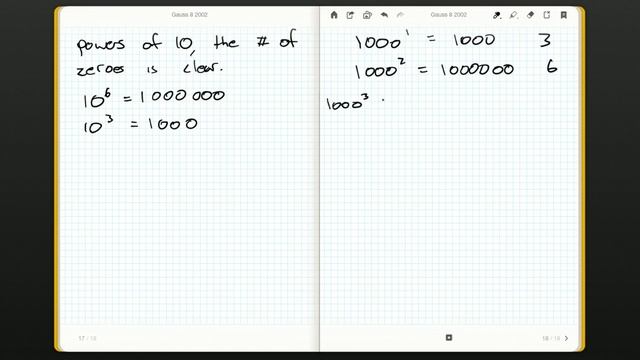 Gauss 8 2002
powers of 10, the # of
zeroes is clear.
10⁶ = 1000 000
10³ = 1000
17 / 18
Gauss 8 2002
1000¹ = 1000 3
1000² = 1000000 6
1000³
18 / 18